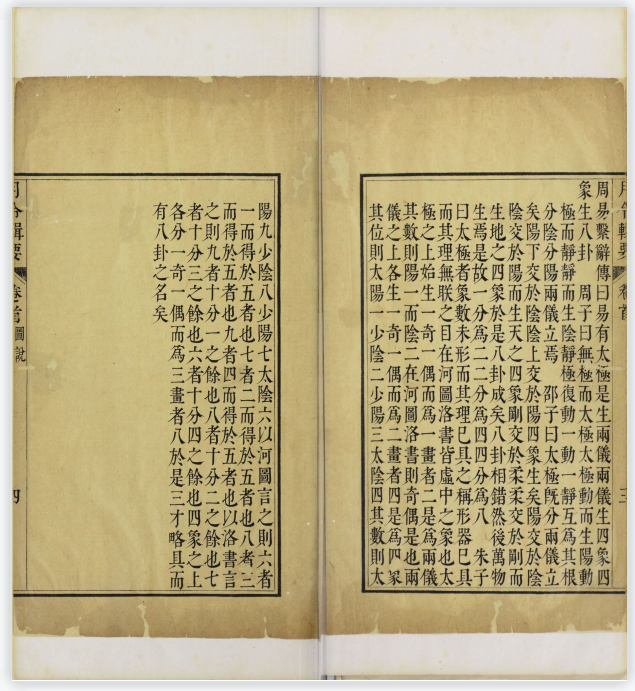 周易繫辭傳曰易有太極是生兩儀兩儀生四象四
象生八卦　周子曰無極而太極太極動而生陽動
極而靜靜而生陰靜極復動一動一靜互爲其根
分陰分陽兩儀立焉　邵子曰太極旣分兩儀立
矣陽下交於陰陰上交於陽四象生矣陽交於陰
陰交於陽而生天之四象剛交於柔柔交於剛而
生地之四象於是八卦成矣八卦相錯然後萬物
生焉是故一分爲二二分爲四四分爲八　朱子
曰太極者象數未形而其理已具之稱形器已具
而其理無眹之目在河圖洛書皆虛中之象也太
極之上始生一奇一偶而爲一畫者二是爲兩儀
其數則陽一而陰二在河圖洛書則奇偶是也兩
儀之上各生一奇一偶而爲二畫者四是爲四象
其位則太陽一少陰二少陽三太陰四其數則太
輯要
卷首
三
陽九少陰八少陽七太陰六以河圖言之則六者
一而得於五者也七者二而得於五者也八者三
而得於五者也九者四而得於五者也以洛書言
之則九者十分一之餘也八者十分二之餘也七
者十分三之餘也六者十分四之餘也四象之上
各分一奇一偶而爲三畫者八於是三才略具而
有八卦之名矣
輯要
卷首
圖說
四